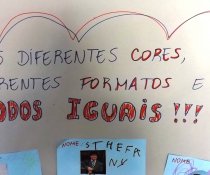 DIFERENTES CORES,
FORMATOS E
IGUAIS!!!
NOME: STHEFA
NY
NOME: